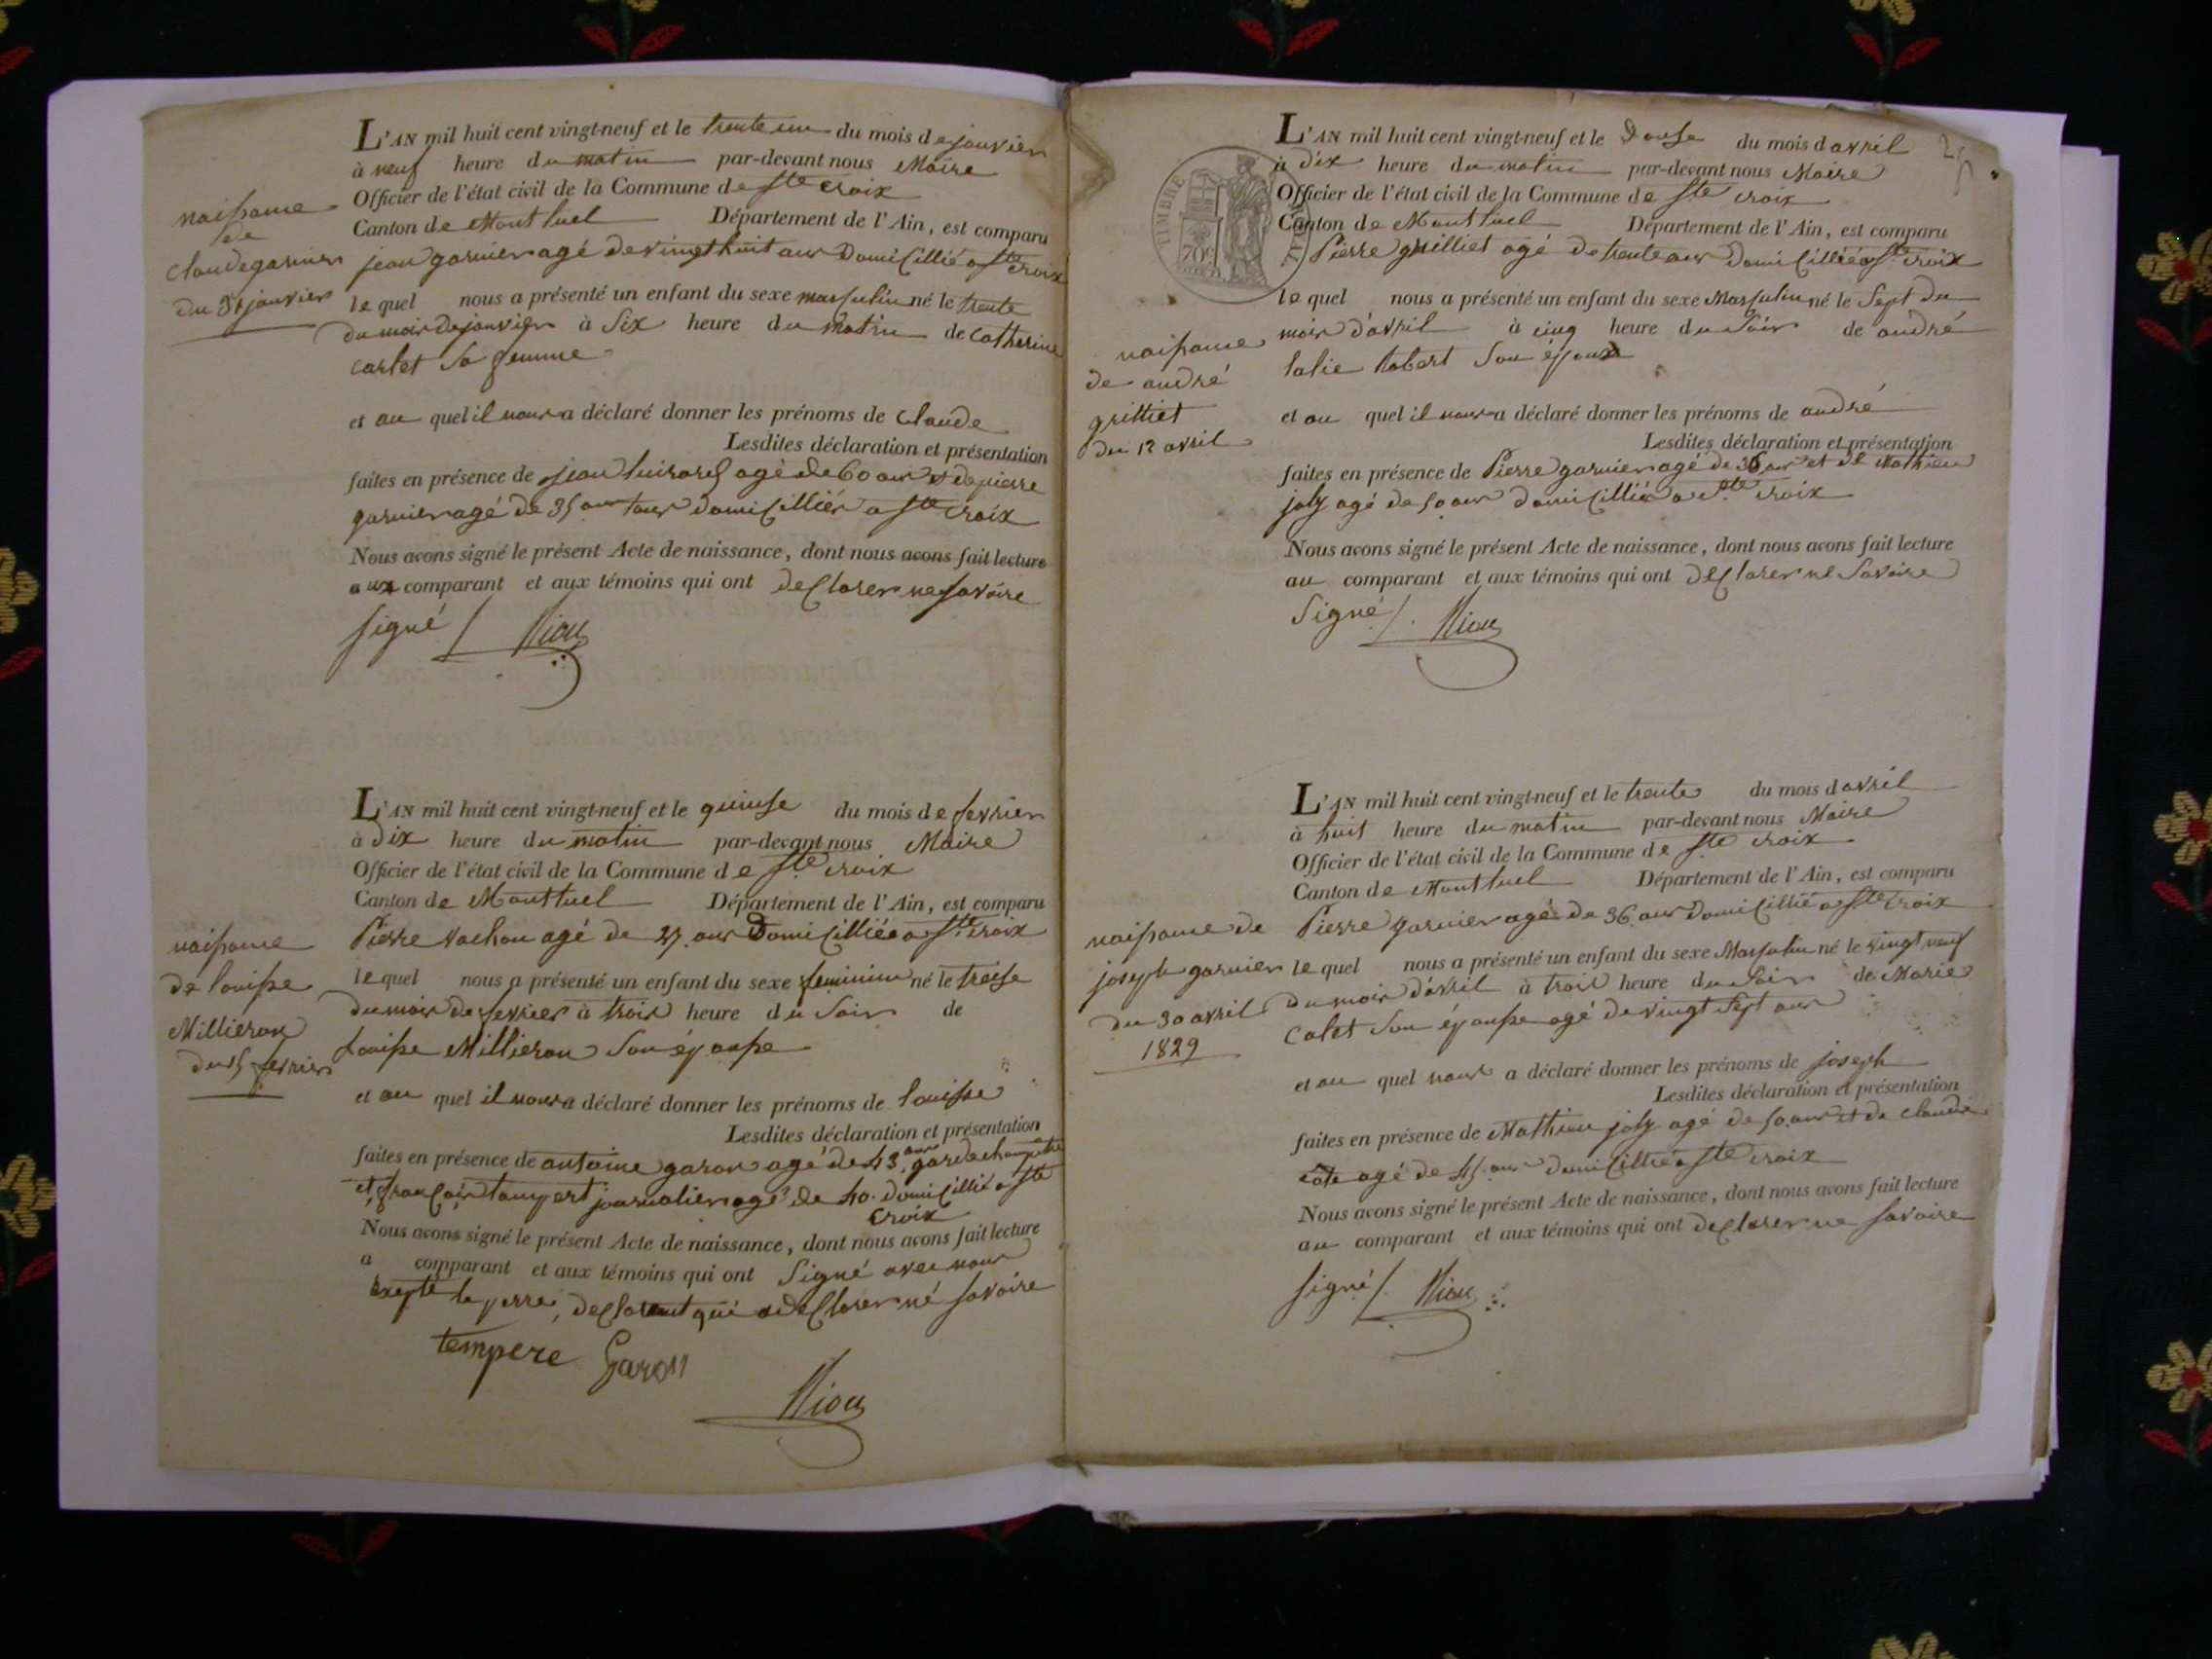 L'AN mil huit cent vingt-neuf et le trente un du mois de janvier
à neuf heure du matin par-devant nous Maire
Officier de l'état civil de la Commune de Ste croix
Canton de Montluel Département de l'Ain, est comparu
jean garnier agé de vingt huit ans Domicillié a Ste croix
le quel nous a présenté un enfant du sexe masculin né le trente
du mois de janvier à Six heure du matin de catherine
carlet Sa femme
et au quel il nous a déclaré donner les prénoms de claude
Lesdites déclaration et présentation
faites en présence de jean agé de 60 ans et de pierre
garnier agé de 35 ans tous domicilliés a Ste croix
Nous avons signé le présent Acte de naissance, dont nous avons fait lecture
aux comparant et aux témoins qui ont declarer ne savoire
signé / Niou
naissance
de
claude garnier
du 31 janvier
L'AN mil huit cent vingt-neuf et le quinse du mois de fevrier
à Dix heure du matin par-devant nous Maire
Officier de l'état civil de la Commune de Ste croix
Canton de Montluel Département de l'Ain, est comparu
Pierre vachon agé de 27 ans Domicillié a Ste croix
le quel nous a présenté un enfant du sexe feminin né le treise
du mois de fevrier à trois heure du Soir de
Louisse Millieron Son épousse
et au quel il nous a déclaré donner les prénoms de louisse
Lesdites déclaration et présentation
faites en présence de antoine garon agé de 43 ans garde champetre
et françois tempert journalier agé de 40. domicillié a Ste
croix
Nous avons signé le présent Acte de naissance, dont nous avons fait lecture
a comparant et aux témoins qui ont Signé avec nous
excepté le perre, declarer né savoire
tempere Garon
Niou
naissance
de louisse
Millieron
du 15 fevrier
L'AN mil huit cent vingt-neuf et le Douse du mois d avril
à dix heure du matin par-devant nous Maire
Officier de l'état civil de la Commune de Ste croix
Canton de Montluel Département de l'Ain, est comparu
Pierre grilliet agé de trente ans domicillié a Ste croix
le quel nous a présenté un enfant du sexe Masculin né le Sept du
mois d'avril à cinq heure du Soir de andré
lalie Robert Son épouse
et au quel il nous a déclaré donner les prénoms de andré
Lesdites déclaration et présentation
faites en présence de Pierre garnier agé de 36 ans et de Mathieu
joly agé de 50 ans domicilliés a Ste croix
Nous avons signé le présent Acte de naissance, dont nous avons fait lecture
au comparant et aux témoins qui ont declarer ne Savoire
Signé /. Niou
TIMBRE
70c
naissance
de andré
grilliet
du 12 avril
L'AN mil huit cent vingt-neuf et le trente du mois d avril
à huit heure du matin par-devant nous Maire
Officier de l'état civil de la Commune de Ste croix
Canton de Montluel Département de l'Ain, est comparu
Pierre garnier agé de 36 ans domicillié a Ste croix
le quel nous a présenté un enfant du sexe Masculin né le vingt neuf
du mois d'avril à trois heure du Soir de Marie
calet Son épousse agé de vingt Sept ans
et au quel nous a déclaré donner les prénoms de joseph
Lesdites déclaration et présentation
faites en présence de Mathieu joly agé de 50 ans et de claude
cote agé de 45 ans domicillié a Ste croix
Nous avons signé le présent Acte de naissance, dont nous avons fait lecture
au comparant et aux témoins qui ont declarer ne savoire
signé /. Niou
naissance de
joseph garnier
du 30 avril
1829